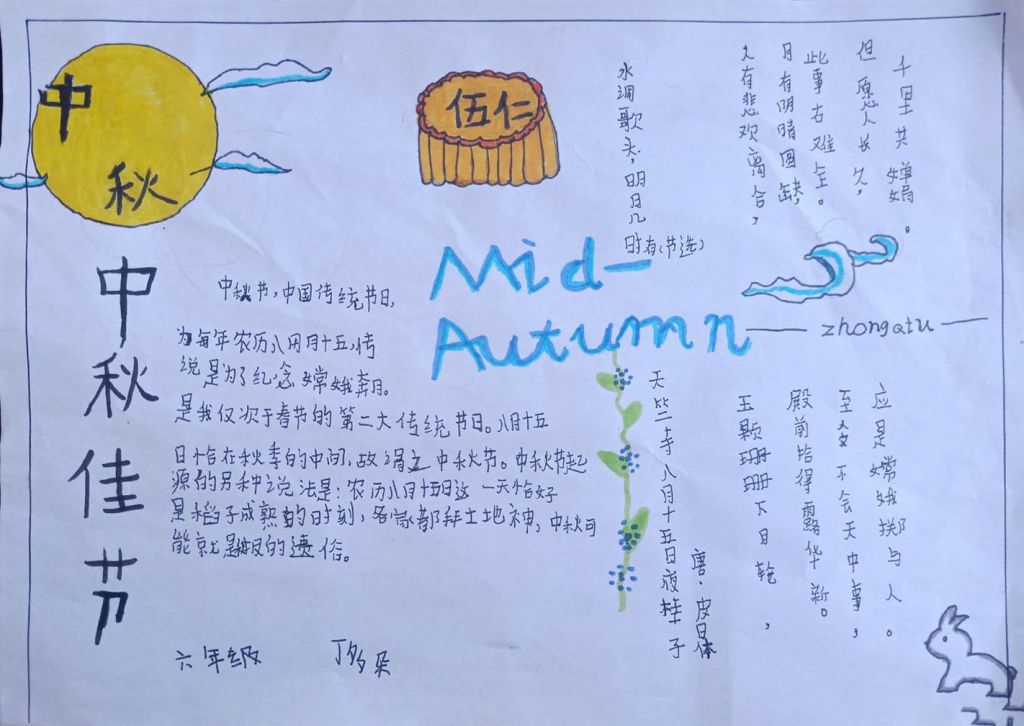 中
秋
伍仁
中秋佳节
Mid-
Autumn
zhongatu
中秋节,中国传统节日,
为每年农历八月月十五,传
说是为了纪念嫦娥奔月。
是我仅次于春节的第二大传统节日。八月十五
日恰在秋季的中间,故谓之中秋节。中秋节起
源的另种之说法是:农历八月十五日这一天恰好
是稻子成熟的时刻,各家都拜土地神,中秋可
能就是的遗俗。
六年级 丁多朵
水调歌头,明月几
时有(节选)
人有悲欢离合,
月有阴晴圆缺,
此事古难全。
但愿人长久,
千里共婵娟。
天竺寺八月十五日夜桂子
唐·皮日体
玉颗珊珊下月,
殿前拾得露华新。
至今不会天中事,
应是嫦娥掷与人。